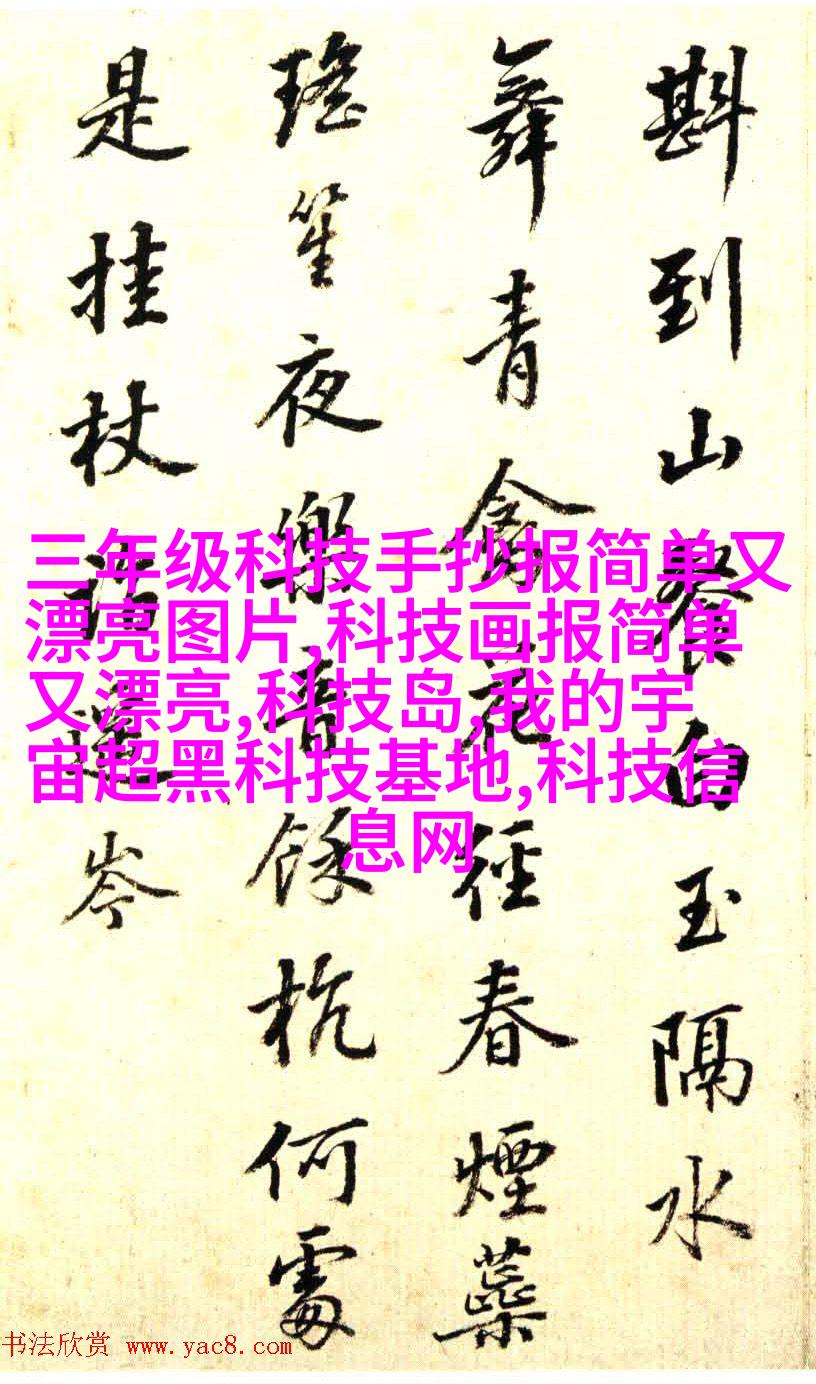 斟到山飱白玉隔水
舞青禽花徑春煙蘂
瑤笙夜樂音餘杭何處
是挂杖訪遥岑
三年级科技手抄报简单又
漂亮图片,科技画报简单
又漂亮,科技岛,我的宇
宙超黑科技基地,科技信
息网
书法欣赏 www.yac8.com